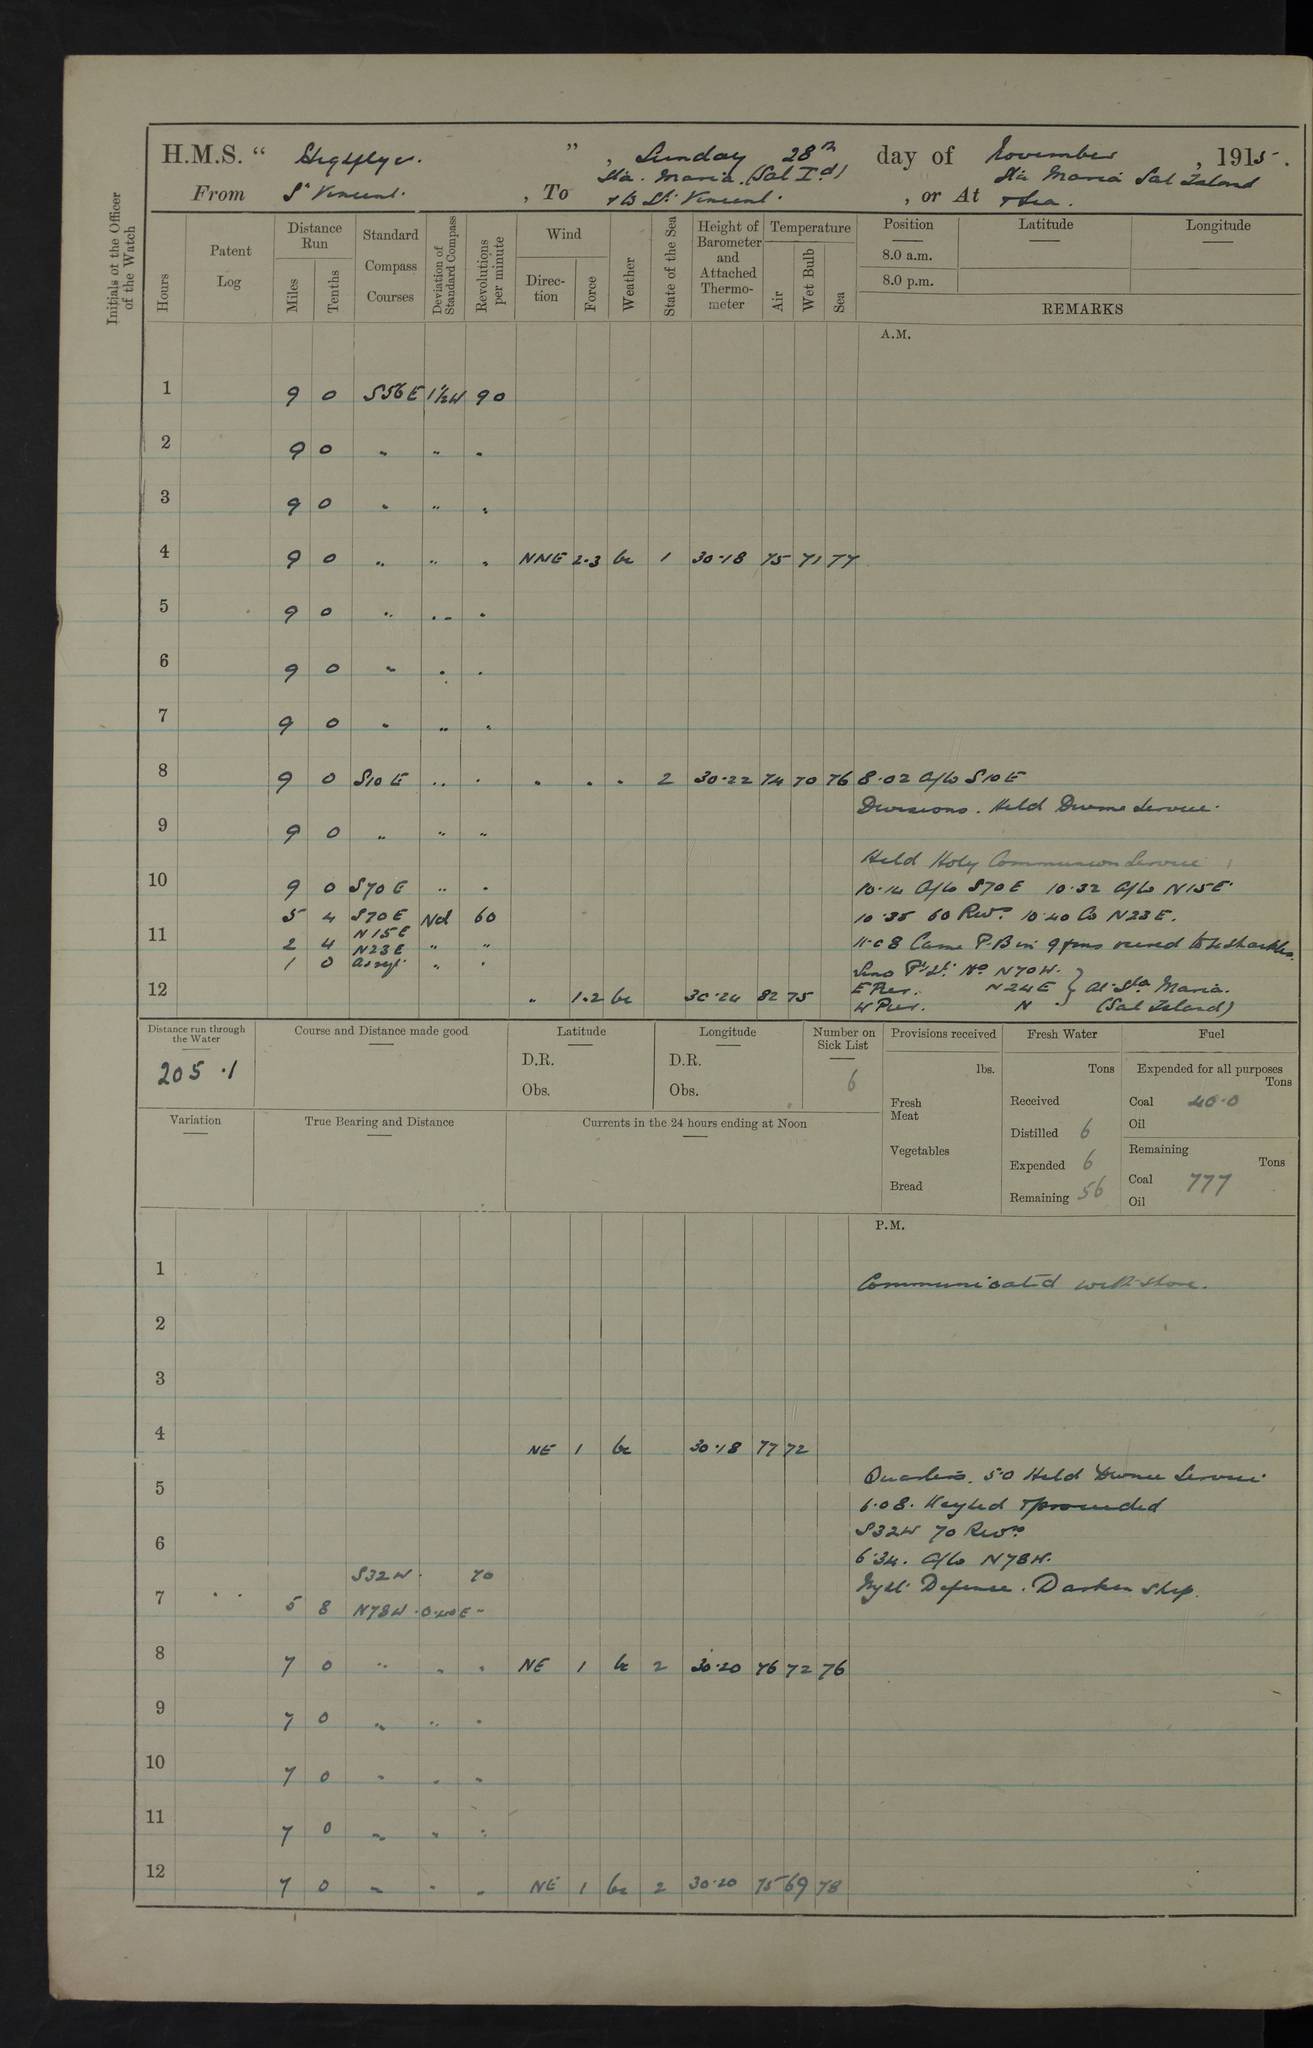 H.M.S. " Highflyer. ", Sunday 28th day of November, 1915.
From St Vincent. , To Sta. Maria. (Sal Id) & to St. Vincent. , or At Sta Maria Sal Island & Sea.
Initials of the Officer of the Watch
Hours
Patent Log
Distance Run
Miles
Tenths
Standard Compass Courses
Deviation of Standard Compass
Revolutions per minute
Wind
Direction
Force
Weather
State of the Sea
Height of Barometer and Attached Thermometer
Temperature
Air
Wet Bulb
Sea
Position
8.0 a.m.
8.0 p.m.
Latitude
Longitude
REMARKS
A.M.
1 9 0 S56E 1½W 90
2 9 0 " " "
3 9 0 " " "
4 9 0 " " " NNE 2.3 bc 1 30.18 75 71 77
5 9 0 " " "
6 9 0 " " "
7 9 0 " " "
8 9 0 S10E " " " " " 2 30.22 74 70 76 8.02 A/Co S10E
Divisions. Held Divine Service.
9 9 0 " " "
Held Holy Communion Service
10 9 0 S70E " " 10.14 A/Co S70E 10.32 A/Co N15E
5 4 S70E Nd 60 10.35 60 Revs. 10.40 Co N23E.
11 N15E
2 4 N23E " " 11.08 Came P.B in 9 fms veered to shackles.
1 0 As req. " "
Sino Pt. Lt. Ho N70W.
12 " 1.2 bc 30.24 82 75 E Pier. N24E } At Sta Maria.
W Pier. N (Sal Island)
Distance run through the Water
205.1
Course and Distance made good
Latitude
D.R.
Obs.
Longitude
D.R.
Obs.
Number on Sick List
6
Provisions received
lbs.
Fresh Meat
Vegetables
Bread
Fresh Water
Tons
Received
Distilled 6
Expended 6
Remaining 56
Fuel
Expended for all purposes
Tons
Coal 40.0
Oil
Remaining
Tons
Coal 777
Oil
Variation
True Bearing and Distance
Currents in the 24 hours ending at Noon
P.M.
1 Communicated with shore.
2
3
4 NE 1 bc 30.18 77 72
Quarters. 5.0 Held Divine Service.
5
6.08. Weighed & proceeded
S32W 70 Revs.
6
6.34. A/Co N78W.
S32W. 70 Night Defence. Darken ship.
7 5 8 N78W 0.40E "
8 7 0 " " " NE 1 bc 2 30.20 76 72 76
9 7 0 " " "
10 7 0 " " "
11 7 0 " " "
12 7 0 " " " NE 1 bc 2 30.20 75 69 78